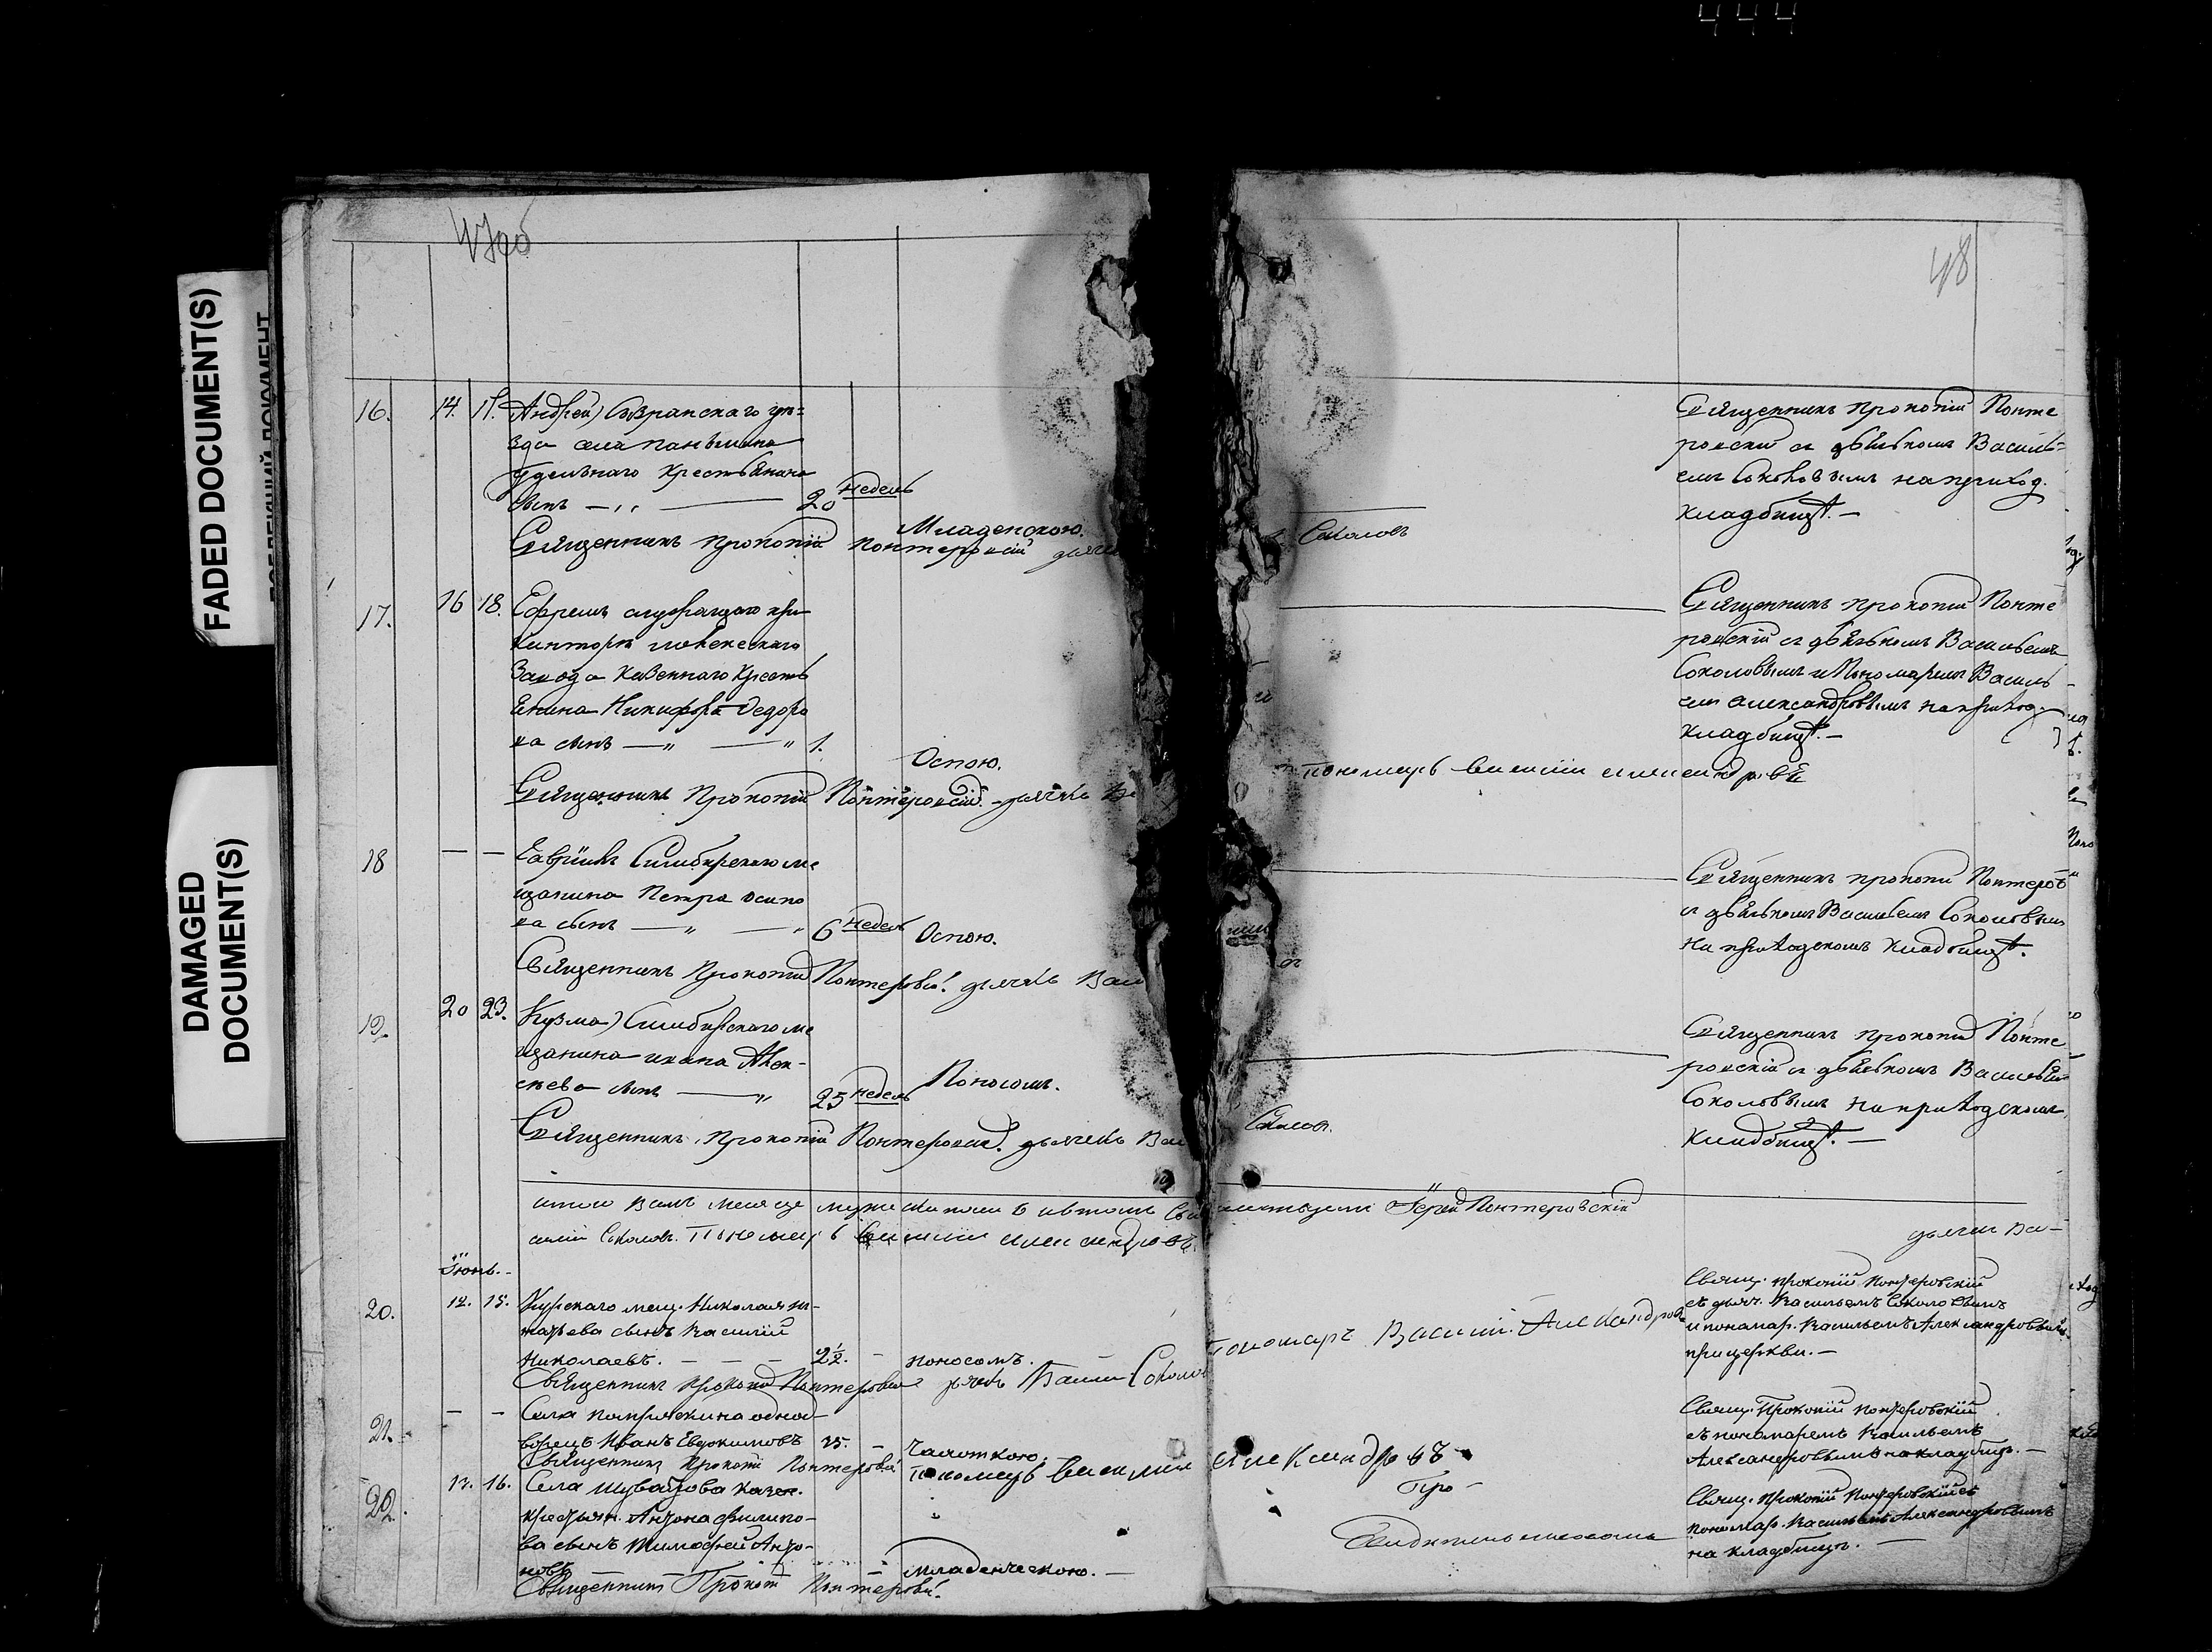 444
FADED DOCUMENT(S)
DAMAGED
DOCUMENT(S)
47об
48
16. 14. 17. Андрей) Сызранскаго уѣ-
зда села Паньшина
удельнаго крестьянина
сынъ — 20 недель
Младенскою.
Священникъ Прокопій Понтеровскій дьячек
Соколовъ
Священникъ Прокопій Понте
ровскій съ дьячькомъ Василь-
емъ Соколовымъ на приход.
кладбищѣ. —
17. 16 18. Ефремъ служащаго при
конторѣ
завода казеннаго кресть
янина Никифора Федоро
ва сынъ — 1.
Оспою.
Священникъ Прокопій Понтеровскій. дьячкъ
пономарь Василій Александровъ
Священникъ Прокопій Понте
ровскій съ дьячькомъ Васильемъ
Соколовымъ и Пономаремъ Василь-
емъ Александровымъ на приход.
кладбищѣ. —
18 — — Гавріилъ Симбирскаго ме
щанина Петра Осипо
ва сынъ — 6 недель Оспою.
Священникъ Прокопій Понтеровскій. дьячкъ Васи
Священникъ Прокопій Понтеров
съ дьячькомъ Васильемъ Соколовым
на приходскомъ кладбищѣ.
19. 20 23. Кузма) Симбирскаго ме
щанина Ивана Алек-
сѣева сынъ — 25 недель Поносомъ.
Священникъ Прокопій Понтеровскій. дьячекъ Вас
Соколов.
Священникъ Прокопій Понте
ровскій съ дьячькомъ Васильем
Соколовымъ на приходскомъ
кладбищѣ. —
итого въ месяце мужеска пола 6 Іерей Понтеровскій
дьячек Ва-
силій Соколовъ. Пономарь Василій Александровъ.
Іюнь. -
20. 12. 15. Курскаго мещ. Николая
сынъ Василій
Николаевъ. — — — 2½. - поносомъ.
Священникъ Прокопій Понтеровскій дьячекъ Василій Соколов
Пономарь Василій Александровъ
Свящ. Прокопій Понтеровскій
съ дьяч. Васильемъ Соколовымъ
и понамар. Васильемъ Александровымъ
при церкви. —
21. — — Села однод-
ворецъ Иванъ Евдокимовъ 25. - чахоткою.
Священникъ Прокопій Понтеровскій Пономарь Василій Александровъ
Свящ. Прокопій Понтеровскій
съ понамаремъ Васильемъ
Александровымъ на кладбищѣ. —
22. 13. 16. Села Шувалова казен.
крестьян. Антона Филипо-
ва сынъ Тимофей Анто-
новъ младенческою. —
Священникъ Прокопій Понтеровскій.
Свящ. Прокопій Понтеровскій съ
пономар. Васильемъ Александровымъ
на кладбищѣ. —